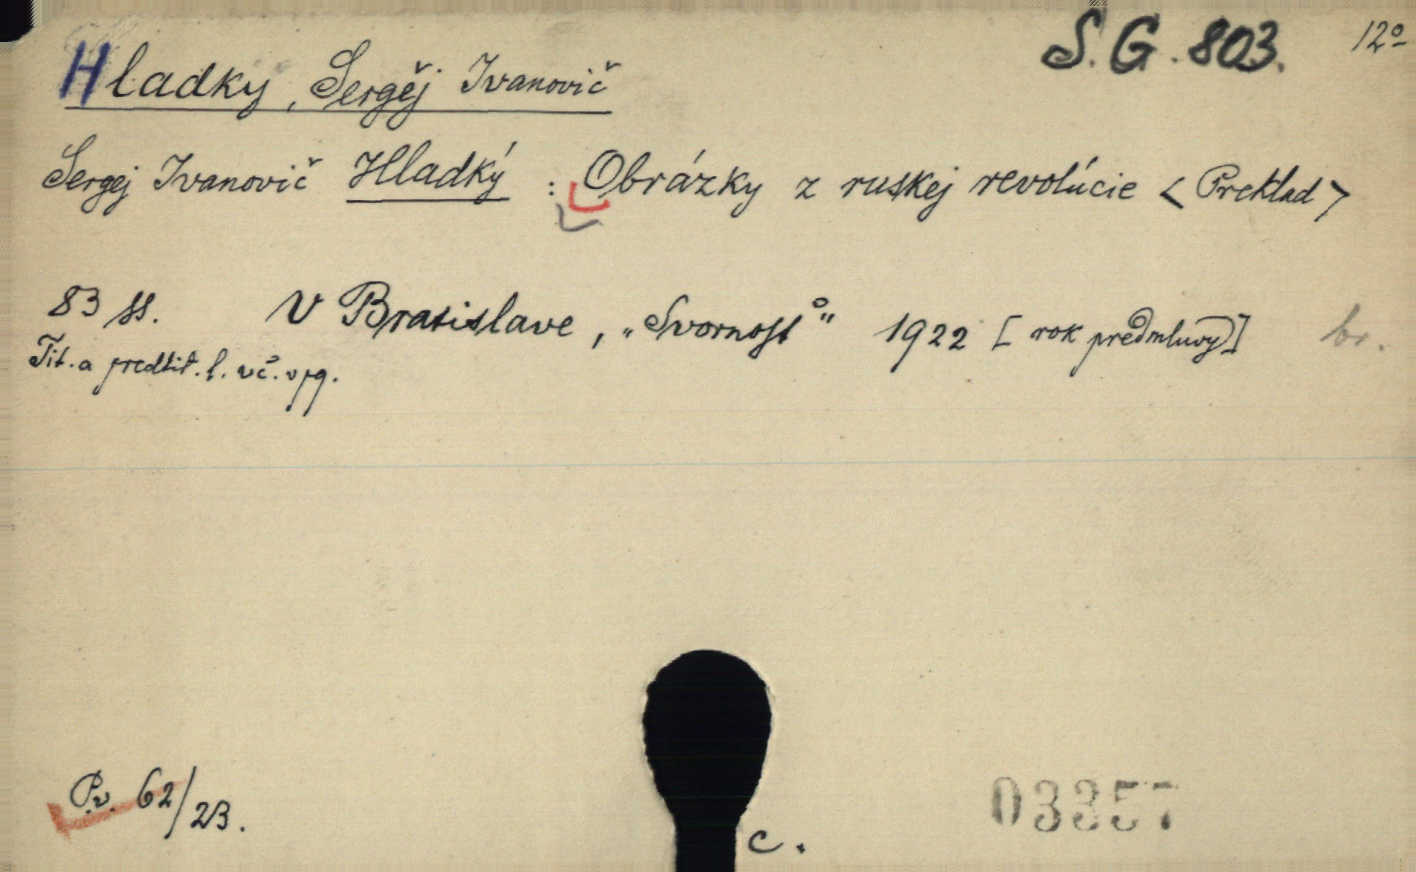 S. G. 803. 12º
Hladky, Sergěj Ivanovič
Sergej Ivanovič Hladký : Obrázky z ruskej revolúcie < Preklad >
83 ss. V Bratislave, „Svornosť“ 1922 [rok predmluvy] br.
Tit. a predtit. l. vč. v pg.
Pv. 62/23.
c.
03357